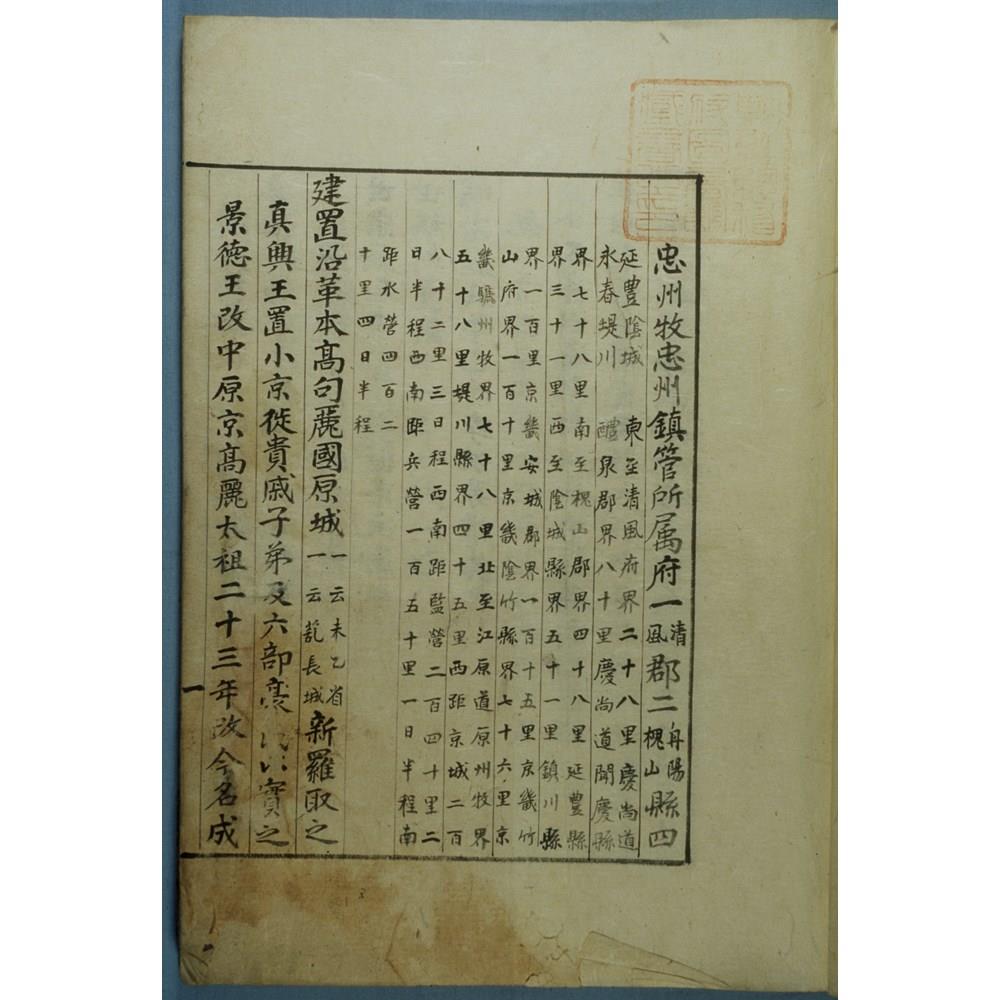 忠州牧忠州鎮管所属府一清風郡二丹陽槐山縣四
延豊陰城 東至清風府界二十八里慶尚道
永春堤川 醴泉郡界八十里慶尚道聞慶縣
界七十八里南至槐山郡界四十八里延豊縣
界三十一里西至陰城縣界五十一里鎮川縣
界一百里京畿安城郡界一百十五里京畿竹
山府界一百十里京畿陰竹縣界七十六里京
畿驪州牧界七十八里北至江原道原州牧界
五十八里堤川縣界四十五里西距京城二百
八十二里三日程西南距監營二百四十里二
日半程西南距兵營一百五十里一日半程南
距水營四百二
十里四日半程
建置沿革本髙句麗國原城一云未乙省一云薍長城新羅取之
真興王置小京徙貴戚子弟及六部豪以實之
景德王改中原京髙麗太祖二十三年改今名成
一